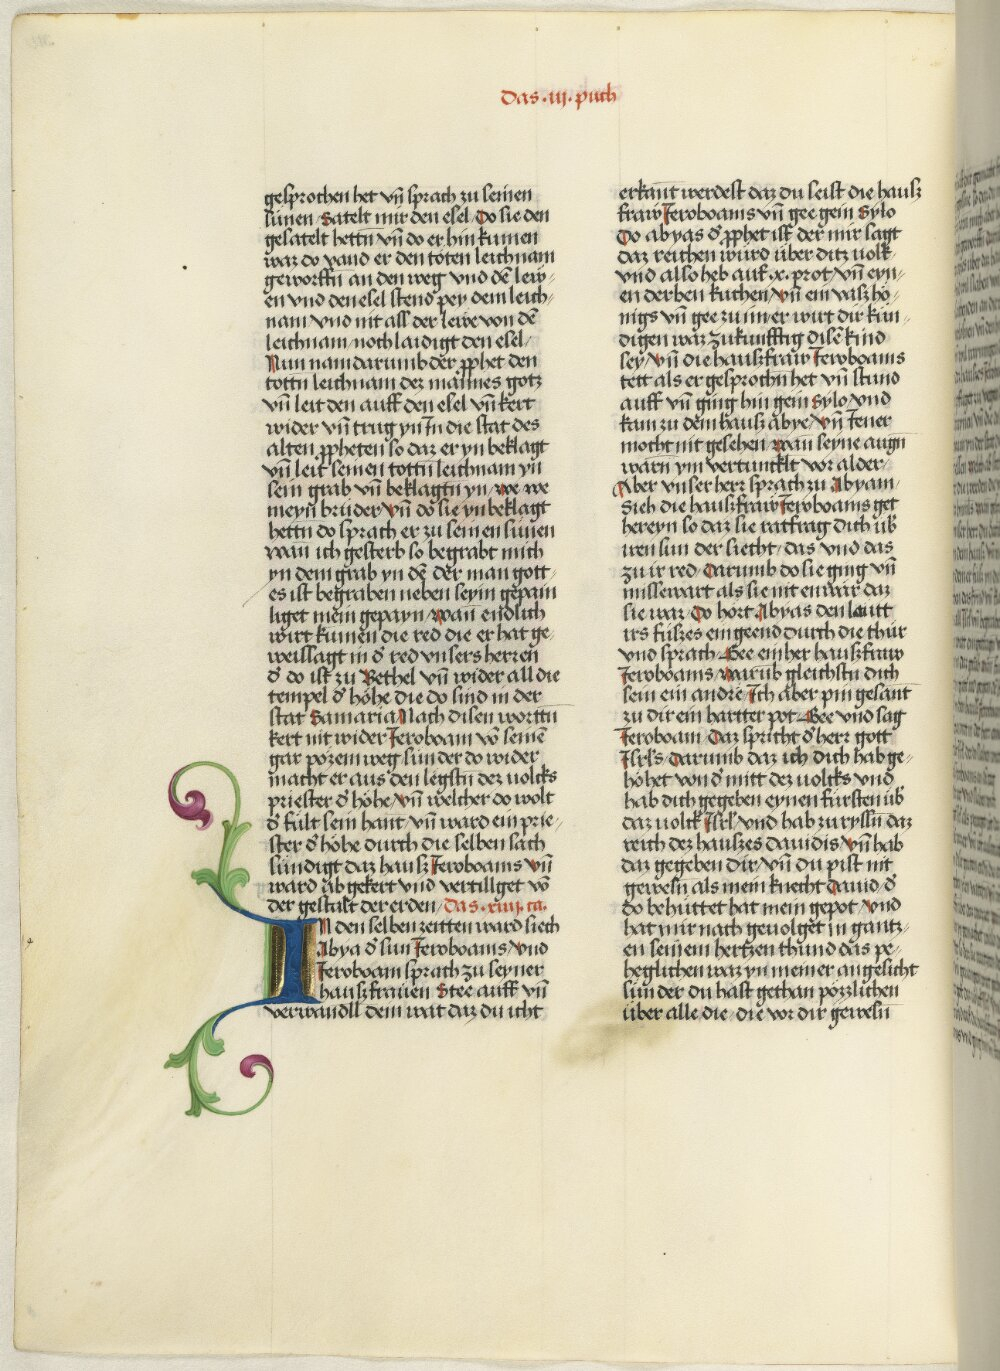 Das .iij. puch
gesprochen het vn̄ sprach zu seinen
sünen Satelt mir den esel Do sie den
gesatelt hettn̄ vn̄ do er hin kumen
waz do vand er den toten leichnam
geworffn̄ an den weg vnd dē lew-
en vnd den esel stend pey dem leich-
nam vnd nit ass der lewe von dē
leichnam noch laidigt den esel
Nun nam darumb der ꝓphet den
tottn̄ leichnam dez mānnes gotz
vn̄ leit den auff den esel vn̄ kert
wider vn̄ trug yn In die stat des
alten ꝓpheten so daz er yn beklagt
vn̄ leit seinen tottn̄ leichnam yn
sein grab vn̄ beklagtn̄ yn we we
meyn̄ brüder vn̄ do sie yn beklagt
hettn̄ do sprach er zu seinen sünen
wan̄ ich gesterb so begrabt mich
yn dem grab yn dē der man gott-
es ist begraben neben seyin gepain
liget mein gepayn wan̄ endlich
wirt kumen die red die er hat ge-
weissagt in d̄ red vnsers herren
d̄ do ist zu Bethel vn̄ wider all die
tempel d̄ höhe die do sind in der
stat Samaria Nach disen worttn̄
kert nit wider Jeroboam vō seinē
gar pözem weg sunder do wider
macht er aus den legstn̄ dez volcks
priester d̄ höhe vn̄ welcher do wolt
d̄ fült sein hant vn̄ ward ein prie-
ster d̄ höhe durch die selben sach
sündigt daz hausz Jeroboams vn̄
ward ab gekert vnd vertillget vō
der gestalt der erden das .xiiij. ca.
In den selben zeitten ward siech
Abya d̄ sun Jeroboams vnd
Jeroboam sprach zu seyner
hauszfrauen Stee auff vn̄
verwandll dein wat daz du icht
erkant werdest daz du seist die hausz
fraw Jeroboams vn̄ gee gein Sylo
Do abyas d̄ ꝓphet ist der mir sagt
daz reichen würd über ditz volk
vnd also heb auf .x. prot vn̄ eyn-
en derben kuchen vn̄ ein vasz hö-
nigs vn̄ gee zu im er wirt dir kün-
digen waz zukunfftig disē kind
sey vn̄ die hauszfraw Jeroboams
tett als er gesprochn̄ het vn̄ stund
auff vn̄ ging hin gein Sylo vnd
kam zu dem hausz abye vn̄ Jener
mocht nit gesehen wan̄ seyne augn̄
warn ym vertuncklt vor alder
Aber vnser herr sprach zu Abyam
Sieh die hauszfraw Jeroboams get
hereyn so daz sie ratfrag dich üb̄
iren sun der siecht das vnd das
zu ir red Darumb do sie ging vn̄
missewart als sie nit en wär daz
sie waz Do hort Abyas den lautt
irs füszes eingeend durch die thür
vnd sprach Gee ein her hauszfraw
Jeroboams warūb gleichstn̄ dich
sein ein andrē Ich aber pin gesant
zu dir ein hartter pot Gee vnd sag
Jeroboam Daz spricht d̄ herr gott
Isrl̄s Darumb daz ich dich hab ge-
höhet von d̄ mitt dez volcks vnd
hab dich gegeben eynen fürsten üb̄
daz volck Isrl̄ vnd hab zuryssn̄ daz
reich dez hauszes dauidis vn̄ hab
daz gegeben dir vn̄ du pist nit
gewesn̄ als mein knecht Dauid d̄
do behüttet hat mein gepot vnd
hat mir nach geuolget in gantz-
en seinem hertzen thund das pe-
heglichen waz yn meiner angesicht
sūnder du hast gethan pözzlichen
über alle die die vor dir gewesn̄